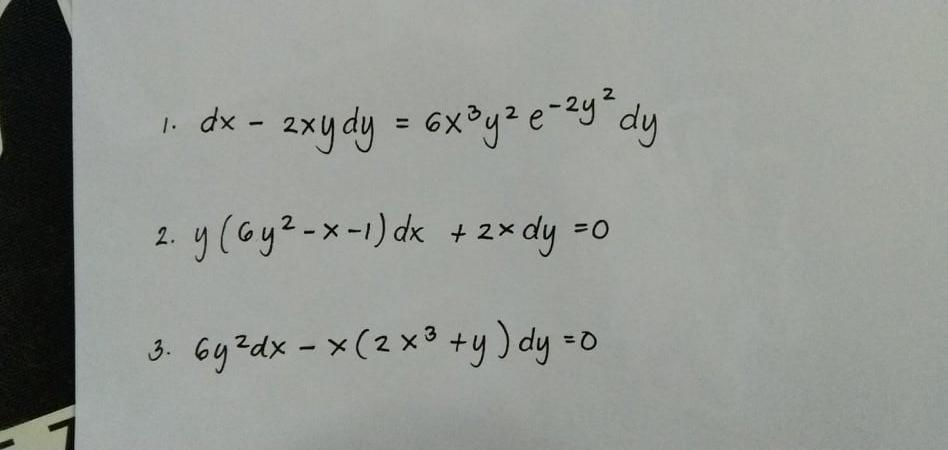 1. dx - 2xydy = 6x³y² e^(-2y²) dy
2. y(6y²-x-1)dx + 2xdy =0
3. 6y²dx - x(2x³+y)dy =0